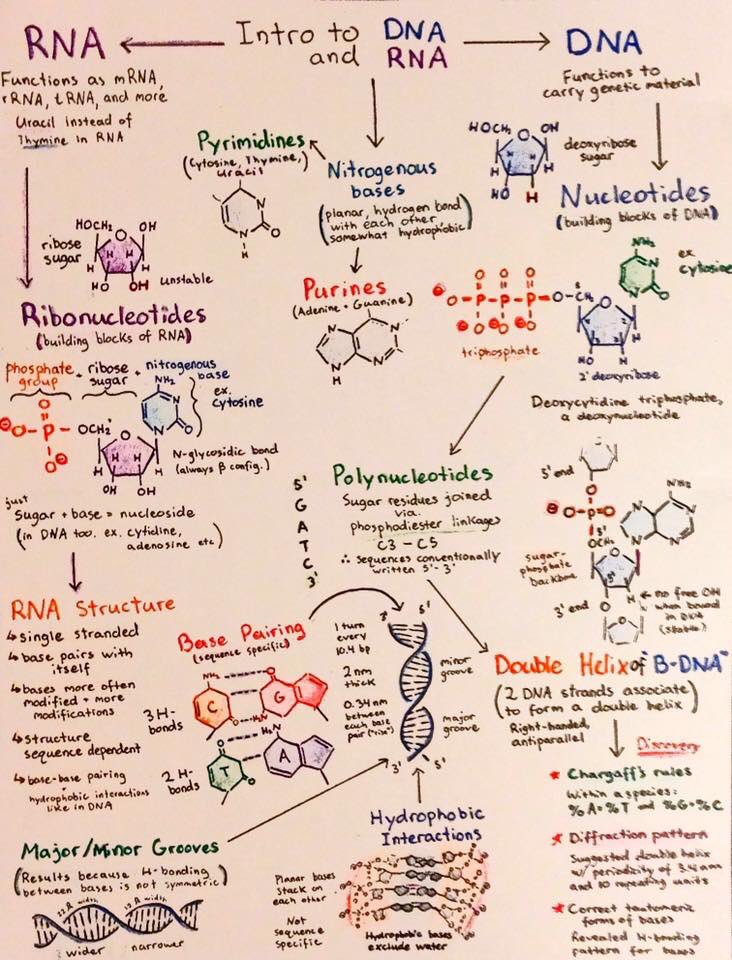 Intro to DNA
and RNA
RNA
Functions as mRNA,
rRNA, tRNA, and more
Uracil instead of
Thymine in RNA
ribose
sugar
HOCH₂
OH
O
H
H
H
H
HO
OH
unstable
Ribonucleotides
(building blocks of RNA)
phosphate
group
+ ribose
sugar
+ nitrogenous
base
NH₂
ex.
Cytosine
N-glycosidic bond
(always β config.)
just
Sugar + base = nucleoside
(in DNA too. ex. cytidine,
adenosine etc)
RNA Structure
↳ single stranded
↳ base pairs with
itself
↳ bases more often
modified + more
modifications
↳ structure
sequence dependent
↳ base-base pairing
+
hydrophobic interactions
like in DNA
Pyrimidines
(Cytosine, Thymine,
Uracil)
Nitrogenous
bases
(planar, hydrogen bond
with each other
somewhat hydrophobic)
Purines
(Adenine + Guanine)
DNA
Functions to
carry genetic material
HOCH₂
OH
deoxyribose
sugar
HO
H
Nucleotides
(building blocks of DNA)
NH₂
ex
cytosine
triphosphate
2' deoxyribose
Deoxycytidine triphosphate,
a deoxynucleotide
Polynucleotides
Sugar residues joined
via
phosphodiester linkages
C3 - C5
∴ sequences conventionally
written 5'- 3'
5'
G
A
T
C
3'
5' end
sugar-
phosphate
backbone
3' end
no free OH
when bound
in DNA
(stable)
Base Pairing
(sequence specific)
3 H-
bonds
C
G
2 H-
bonds
T
A
1 turn
every
10.4 bp
2 nm
thick
0.34 nm
between
each base
pair ("rise")
3'
5'
minor
groove
major
groove
3'
5'
Double Helix of "B-DNA"
(2 DNA strands associate
to form a double helix)
Right-handed,
antiparallel
Discovery
★ Chargaff's rules
Within a species:
%A=%T and %G=%C
★ Diffraction pattern
Suggested double helix
w/ periodicity of 3.4 nm
and 10 repeating units
★ Correct tautomeric
forms of bases
Revealed H-bonding
pattern for bases
Major/Minor Grooves
(Results because H-bonding
between bases is not symmetric)
wider
narrower
Hydrophobic
Interactions
Planar bases
stack on
each other
Not
sequence
specific
Hydrophobic bases
exclude water